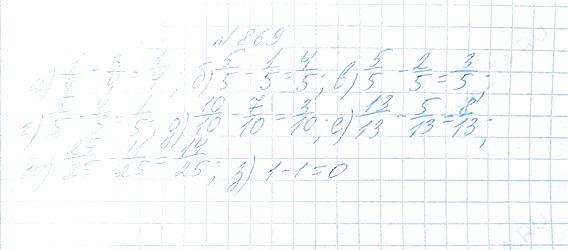 № 869
а) 4/4 - 3/4 = 1/4; б) 5/5 - 1/5 = 4/5; в) 5/5 - 2/5 = 3/5;
г) 5/5 - 4/5 = 1/5; д) 10/10 - 7/10 = 3/10; е) 13/13 - 5/13 = 8/13;
ж) 25/25 - 11/25 = 14/25; з) 1-1=0